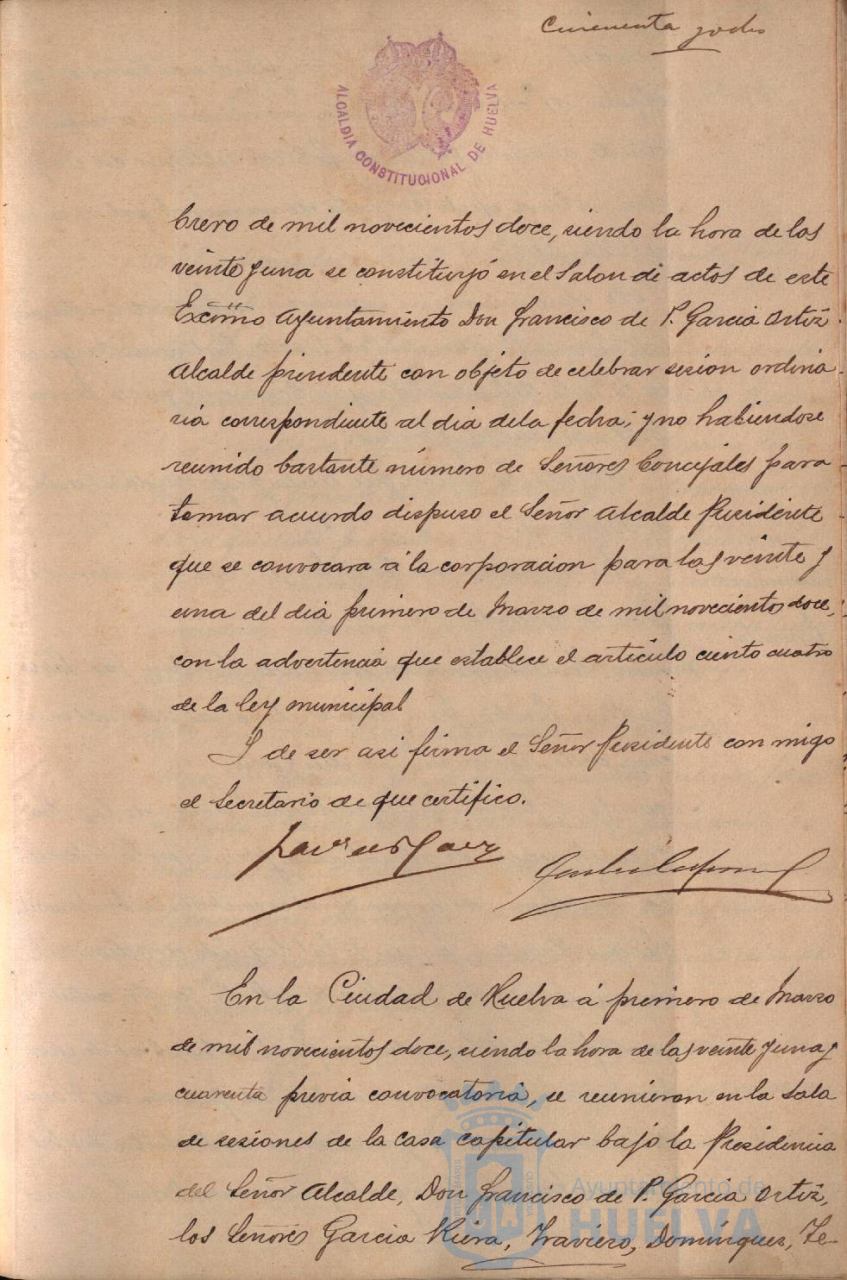 Cincuenta y ocho
ALCALDIA CONSTITUCIONAL DE HUELVA
brero de mil novecientos doce, siendo la hora de las
veinte y una se constituyó en el Salon de actos de este
Excmo Ayuntamiento Don Francisco de P. Garcia Ortiz
Alcalde presidente con objeto de celebrar sesion ordina-
ria correspondiente al dia de la fecha; y no habiendose
reunido bastante número de Señores Concejales para
tomar acuerdo dispuso el Señor Alcalde Presidente
que se convocara á la corporacion para las veinte y
una del dia primero de Marzo de mil novecientos doce,
con la advertencia que establece el artículo ciento cuatro
de la ley municipal
Y de ser asi firma el Señor Presidente con migo
el Secretario de que certifico.
En la Ciudad de Huelva á primero de Marzo
de mil novecientos doce, siendo la hora de las veinte y una y
cuarenta previa convocatoria, se reunieron en la Sala
de sesiones de la casa capitular bajo la Presidencia
del Señor Alcalde, Don Francisco de P. Garcia Ortiz,
los Señores Garcia Riera, Traviero, Domínguez, Te-
Ayuntamiento de
HUELVA